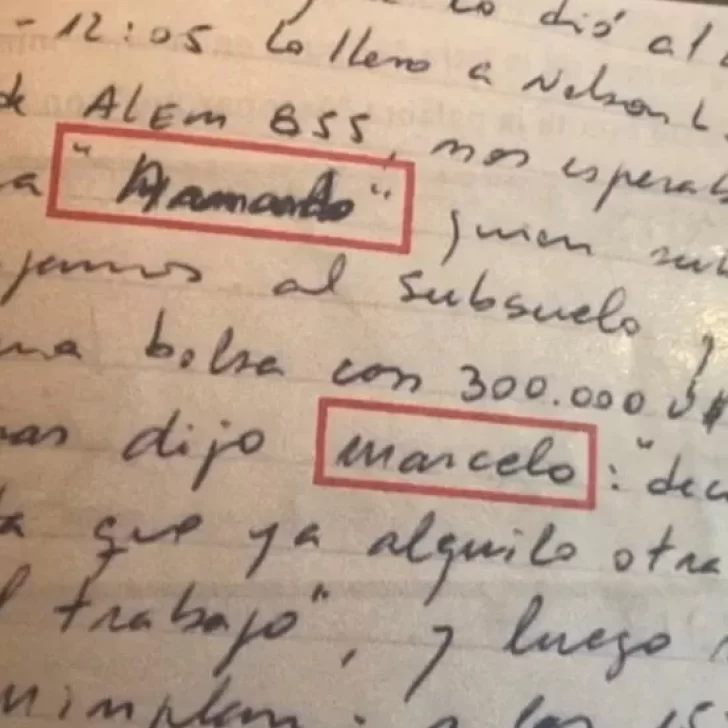 lo dió al
-12:05 lo llevo a Nelson L
de ALEM 855, nos esperab
a "Armando" quien sub
jamos al subsuelo y
na bolsa con 300.000 U$
mas dijo Marcelo: "dec
ta que ya alquilo otra
l trabajo", y luego